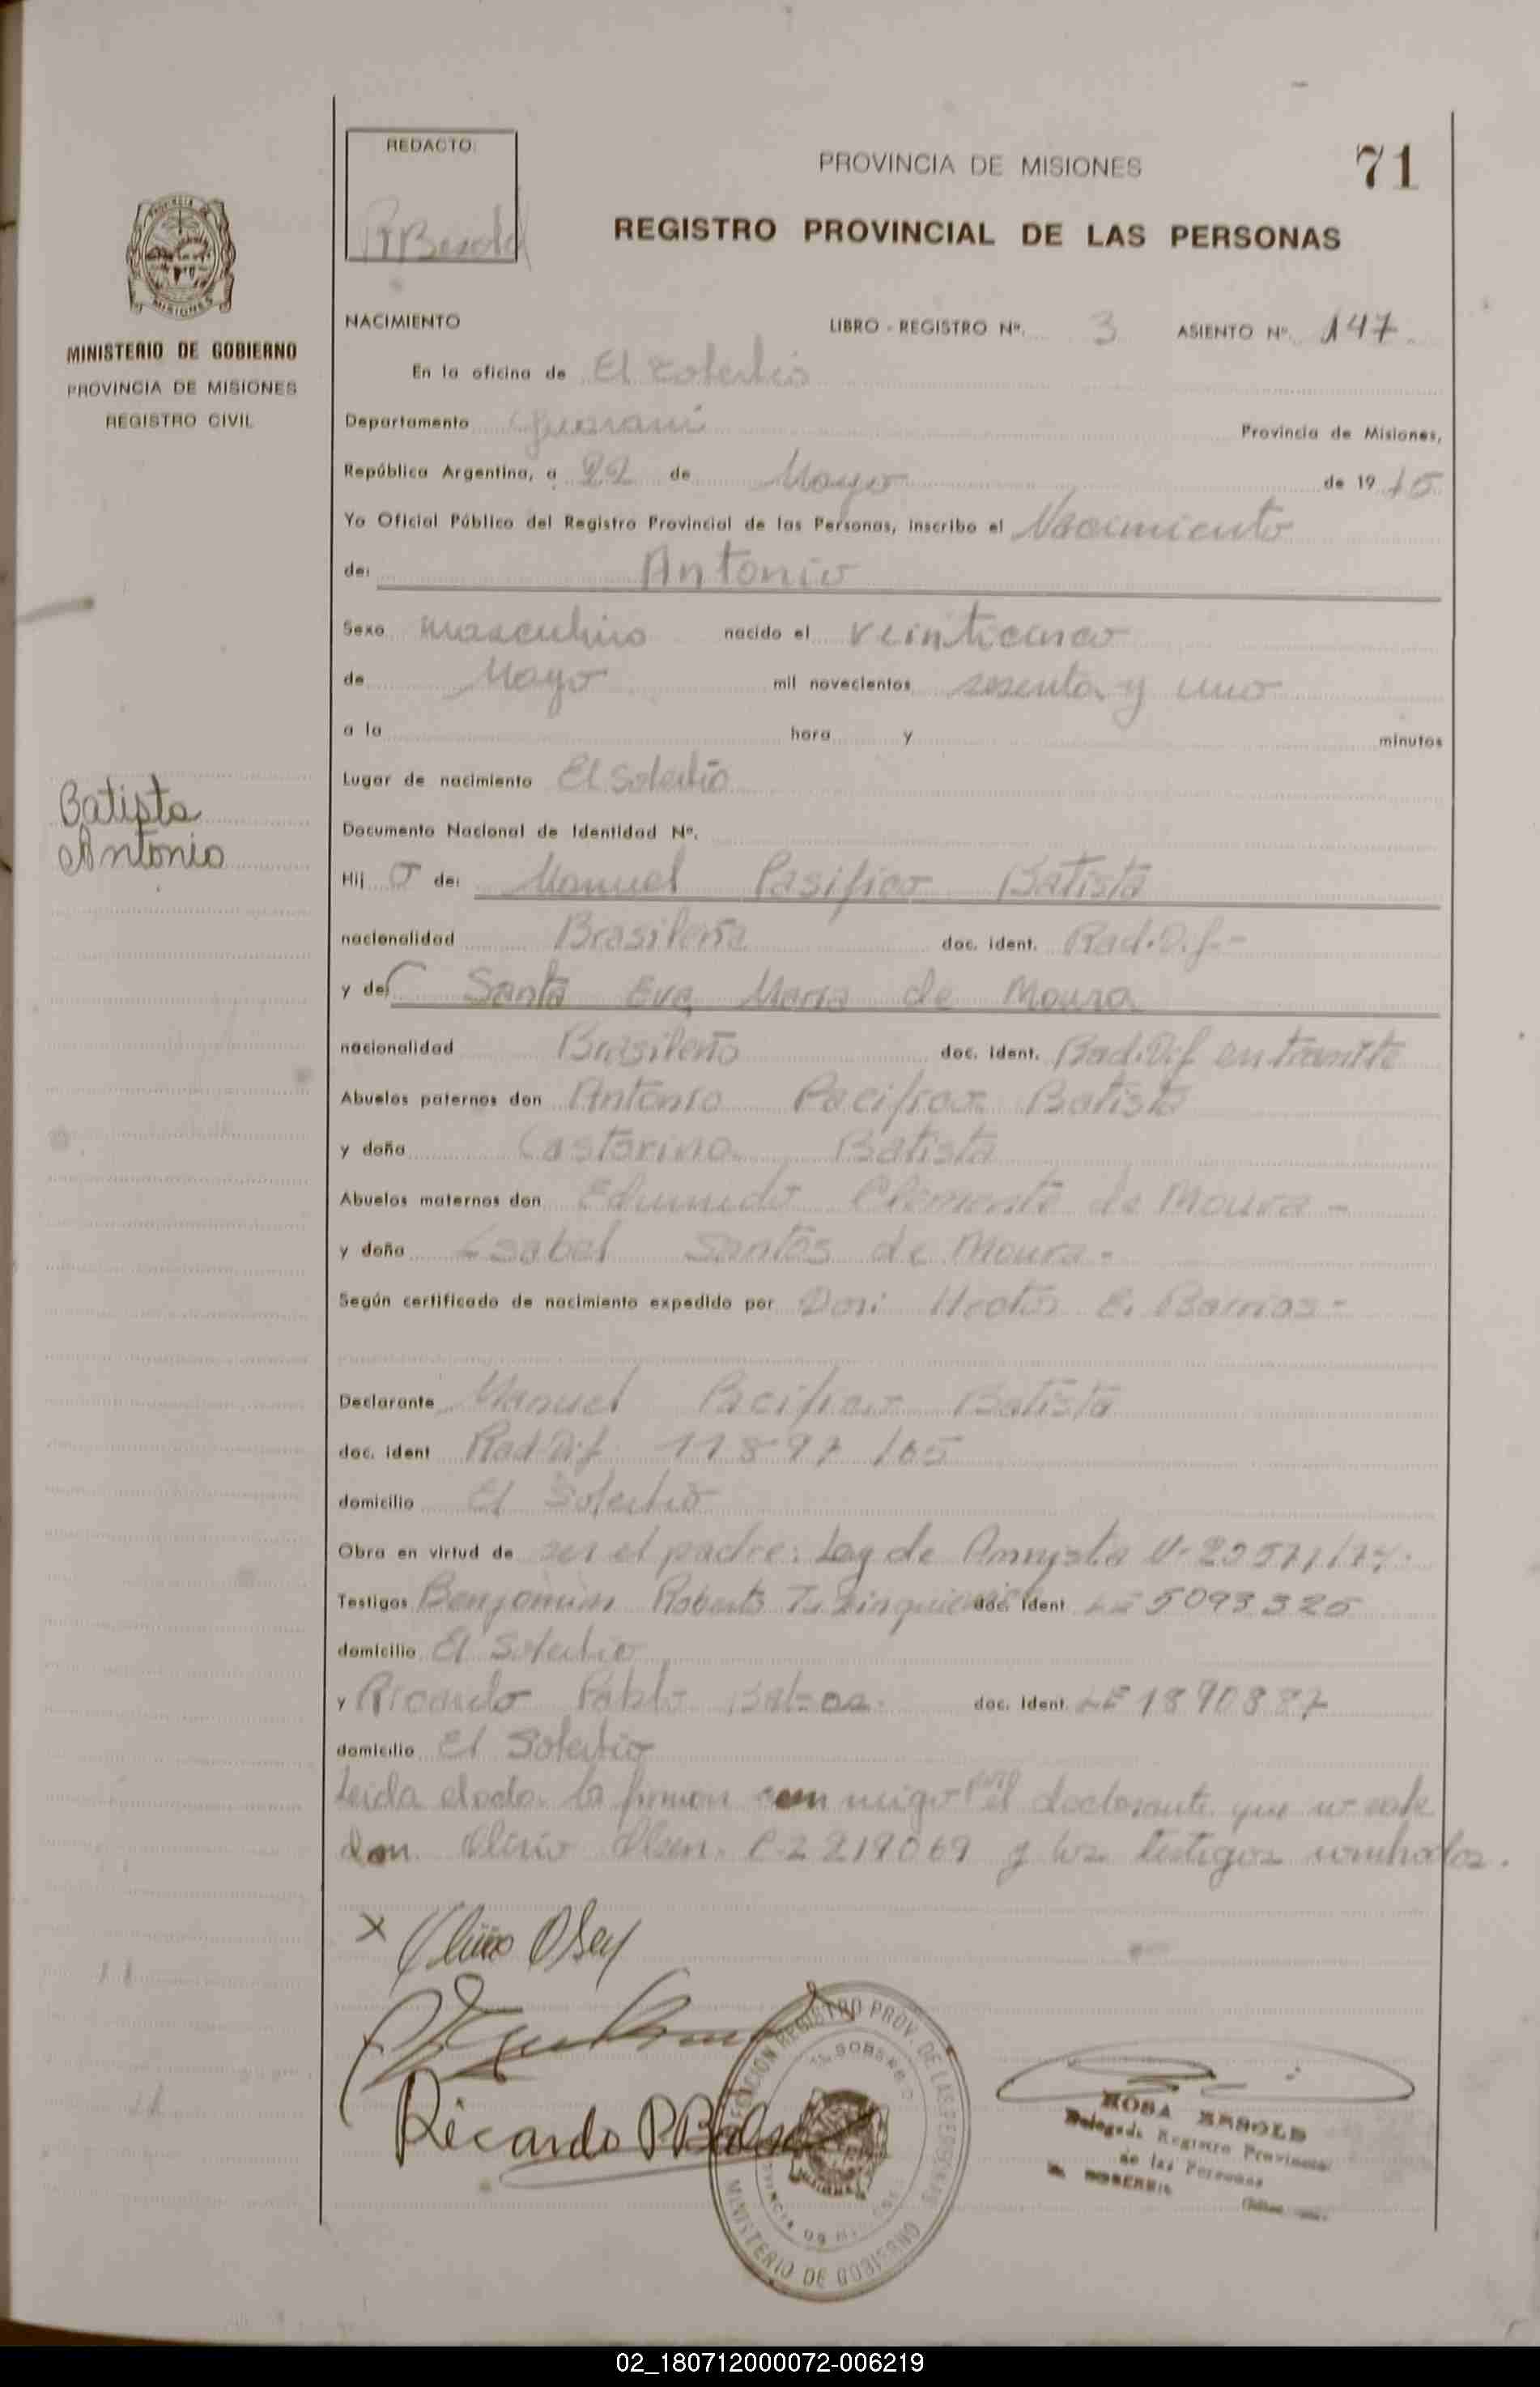 REDACTO
PROVINCIA DE MISIONES
71
REGISTRO PROVINCIAL DE LAS PERSONAS
MINISTERIO DE GOBIERNO
PROVINCIA DE MISIONES
REGISTRO CIVIL
NACIMIENTO LIBRO - REGISTRO Nº. 3 ASIENTO Nº. 147
En la oficina de El
Departamento Guarani Provincia de Misiones,
República Argentina, a 22 de Mayo de 19
Yo Oficial Público del Registro Provincial de las Personas, inscribo el Nacimiento
de: Antonio
Sexo masculino nacido el veinticinco
de Mayo mil novecientos sesenta y uno
a la hora y minutos
Lugar de nacimiento El Soberbio
Batista
Antonio
Documento Nacional de Identidad Nº.
Hij o de: Manuel Pasifico Batista
nacionalidad Brasileña doc. ident. Rad.
y de Santa Eva Maria de Moura
nacionalidad Brasileño doc. ident. en tramite
Abuelos paternos don Antonio Pacifico Batista
y doña Batista
Abuelos maternos don Edmundo Clemente de Moura -
y doña Isabel Santos de Moura -
Según certificado de nacimiento expedido por Hector E. Barrios -
Declarante Manuel Pacifico Batista
doc. ident 11897 /65
domicilio El Soberbio
Obra en virtud de ser el padre: Ley de Amnysta
Testigos Benjamin Roberto doc. ident LE 5093320
domicilio El Soberbio
y Ricardo Pablo doc. ident. LE 1890887
domicilio El Soberbio
Leida el acta la firman con migo por el declarante que no sabe
don Olsen. 2219069 y los testigos nombrados.
x Olsen
Ricardo P.
REGISTRO PROV. DE LAS PERSONAS
MINISTERIO DE GOBIERNO
ROSA
Delegada Registro Provincial
de las Personas
02_180712000072-006219